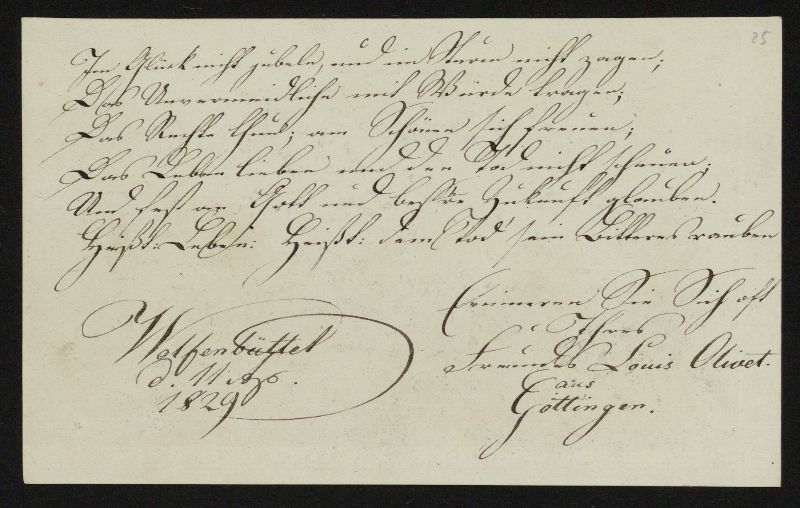 25
Im Glück nicht jubeln, und im Sturm nicht zagen;
Das Unvermeidliche mit Würde tragen;
Das Rechte thun; am Schönen sich freuen;
Das Leben lieben und den Tod nicht scheuen;
Und fest an Gott und beßre Zukunft glauben.
Heißt: Leben: Heißt: dem Tod' sein Bitteres rauben
Erinneren Sie Sich oft
Ihres
Freundes Louis Olivet.
aus
Göttingen.
Wolfenbüttel
d. 11
1829